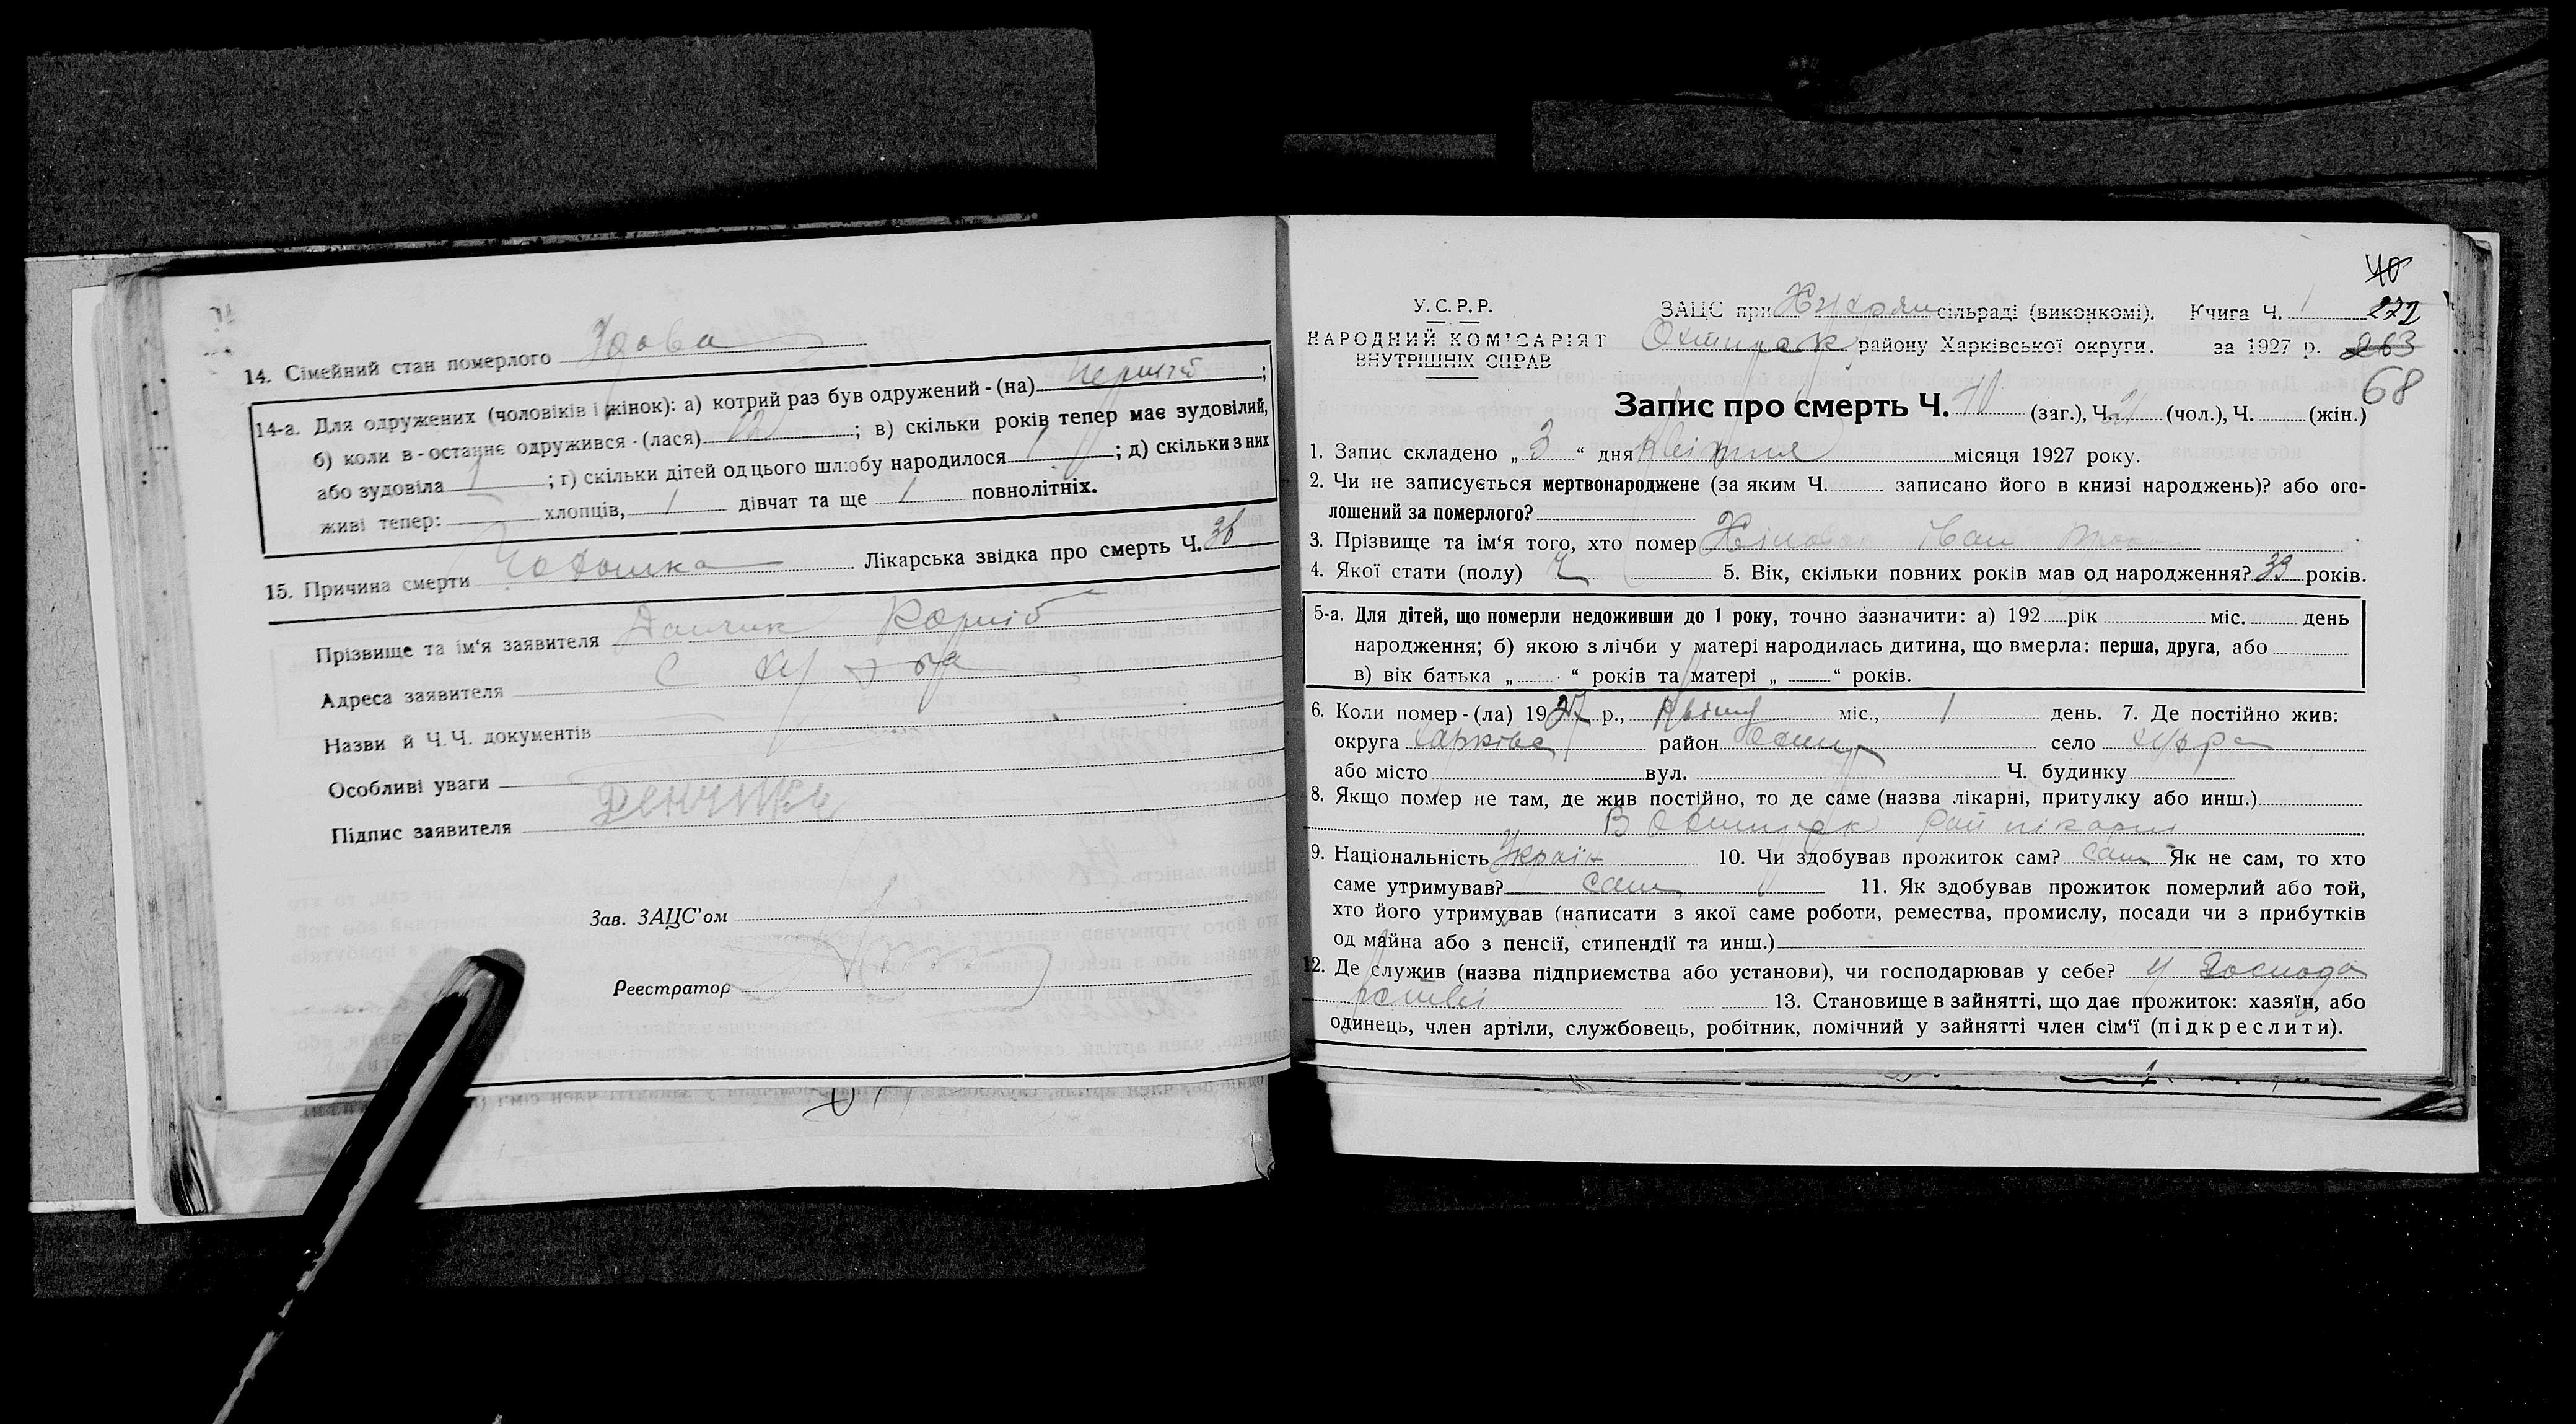 14. Сімейний стан померлого Удова
14-а. Для одружених (чоловіків і жінок): а) котрий раз був одружений - (на) перший ;
б) коли в-останнє одружився - (лася) ; в) скільки років тепер має зудовілий,
або зудовіла 1 ; г) скільки дітей од цього шлюбу народилося 1 ; д) скільки з них
живі тепер: хлопців, 1 дівчат та ще 1 повнолітніх.
15. Причина смерти Лікарська звідка про смерть Ч. 36
Прізвище та ім'я заявителя Корній
Адреса заявителя С
Назви й Ч.Ч. документів
Особливі уваги
Підпис заявителя
Зав. ЗАЦС'ом
Реєстратор
40
У.С.Р.Р.
НАРОДНИЙ КОМІСАРІЯТ
ВНУТРІШНІХ СПРАВ
ЗАЦС при сільраді (виконкомі). Книга Ч. 1 272
Охтирськ району Харківської округи. за 1927 р. 263
68
Запис про смерть Ч. (заг.), Ч. (чол.), Ч. (жін.)
1. Запис складено „ 3 “ дня Квітня місяця 1927 року.
2. Чи не записується мертвонароджене (за яким Ч. записано його в книзі народжень)? або ого-
лошений за померлого?
3. Прізвище та ім'я того, хто помер Іван
4. Якої стати (полу) Ч 5. Вік, скільки повних років мав од народження? 33 років.
5-а. Для дітей, що померли недоживши до 1 року, точно зазначити: а) 192 рік міс. день
народження; б) якою з лічби у матері народилась дитина, що вмерла: перша, друга, або
в) вік батька „ “ років та матері „ “ років.
6. Коли помер - (ла) 1927 р., міс., 1 день. 7. Де постійно жив:
округа Харківс район Охтир село
або місто вул. Ч. будинку
8. Якщо помер не там, де жив постійно, то де саме (назва лікарні, притулку або инш.)
В Охтирськ рай лікарні
9. Національність Україн 10. Чи здобував прожиток сам? сам Як не сам, то хто
саме утримував? сам 11. Як здобував прожиток померлий або той,
хто його утримував (написати з якої саме роботи, ремества, промислу, посади чи з прибутків
од майна або з пенсії, стипендії та инш.)
12. Де служив (назва підприємства або установи), чи господарював у себе? у господа
рстві 13. Становище в зайнятті, що дає прожиток: хазяїн, або
одинець, член артіли, службовець, робітник, помічний у зайнятті член сім'ї (підкреслити).